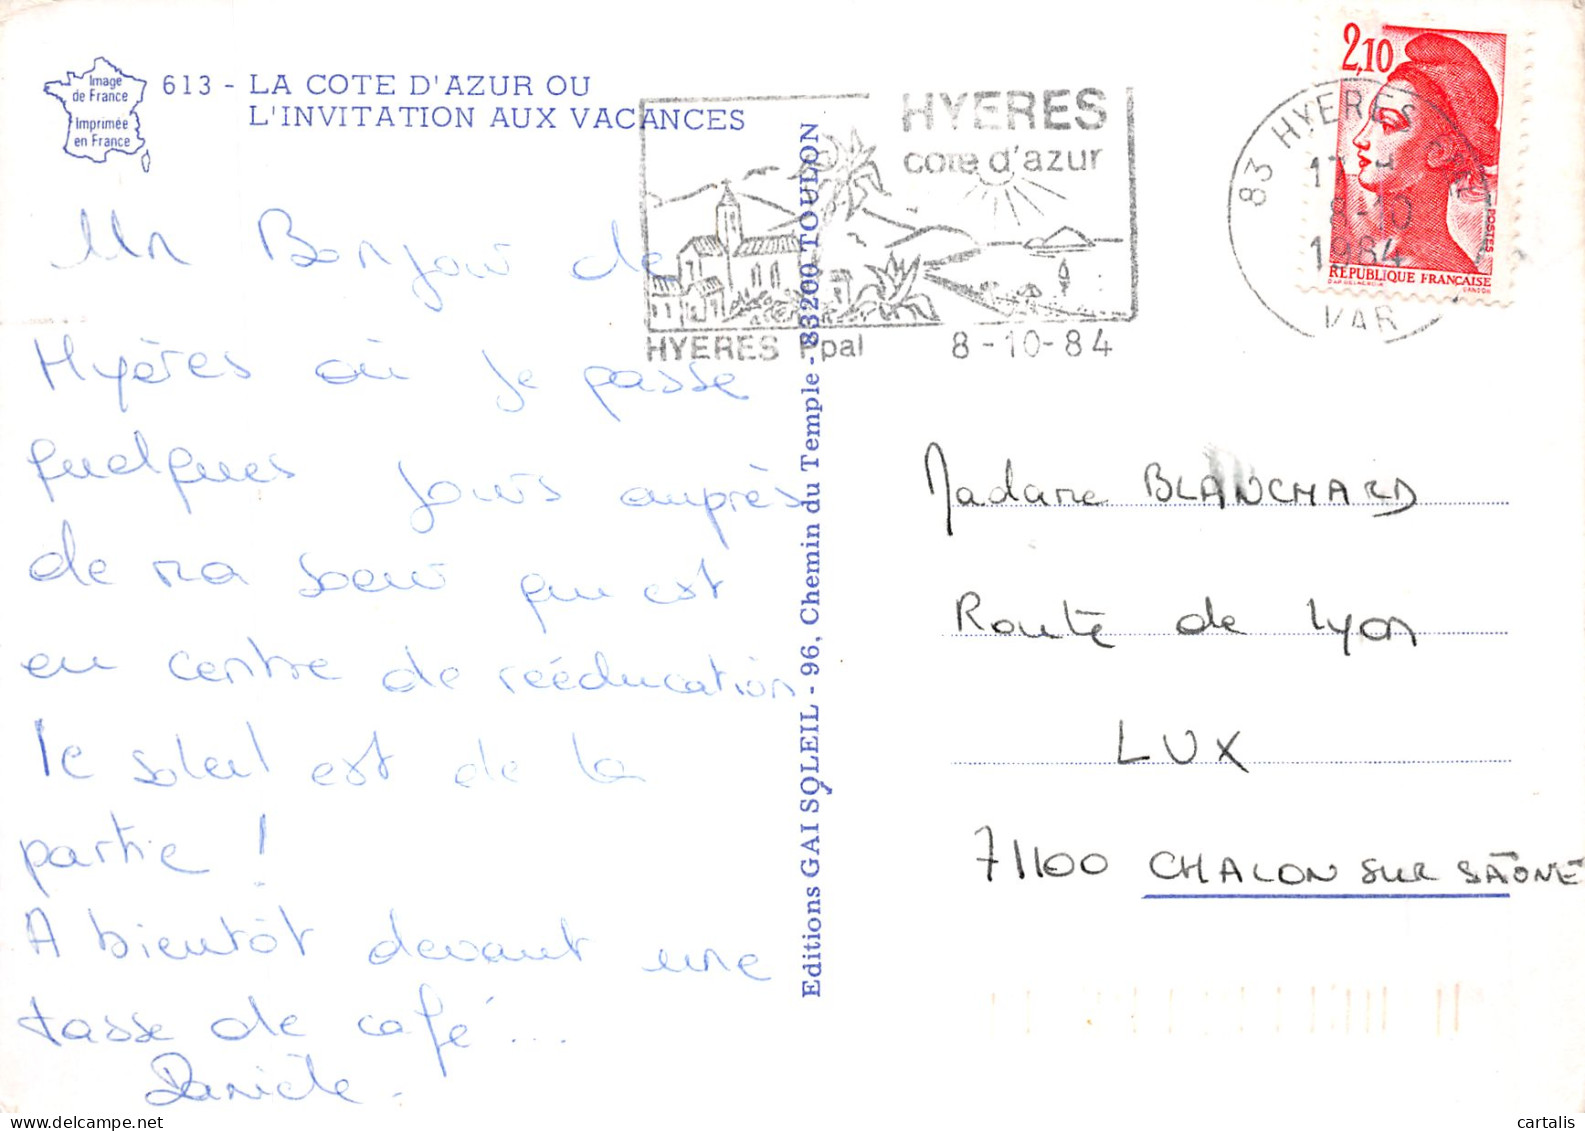 Image
de France
Imprimée
en France
613 - LA COTE D'AZUR OU
L'INVITATION AUX VACANCES
Un Bonjour de
Hyères où je passe
quelques jours auprès
de ma soeur qui est
en centre de rééducation
le soleil est de la
partie !
A bientôt devant une
tasse de café...
Danièle.
Editions GAI SOLEIL - 96, Chemin du Temple - 83200 TOULON
HYERES
cote d'azur
HYERES Ppal 8-10-84
83 HYERES
8-10
1984
VAR
2,10
POSTES
REPUBLIQUE FRANÇAISE
Madame BLANCHARD
Route de Lyon
LUX
71100 CHALON SUR SAÔNE
cartalis